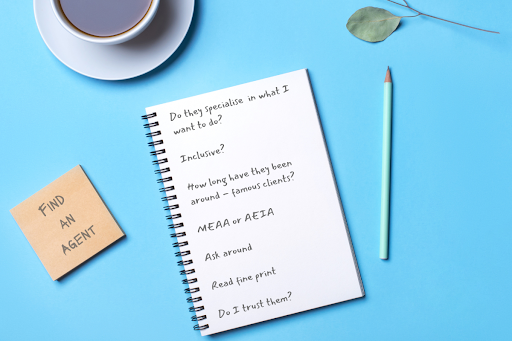 Do they specialise in what I
want to do?
Inclusive?
How long have they been
around – famous clients?
MEAA or AEIA
Ask around
Read fine print
Do I trust them?
FIND
AN
AGENT